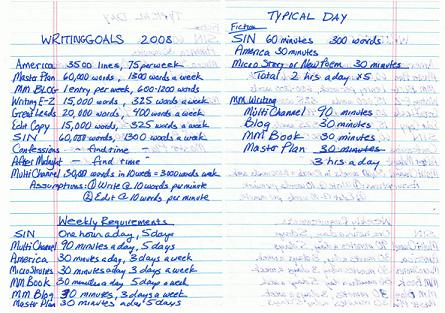 WRITING GOALS 2008
America 3500 lines, 75 per week
Master Plan 60,000 words, 1300 words a week
MM BLOG 1 entry per week, 600-1200 words
Writing E-Z 15,000 words, 325 words a week
Great Leads 20,000 words, 400 words a week
Edit Copy 15,000 words, 325 words a week
SIN 60,000 words, 1300 words a week
Confessions - find time -
After Midnight - find time -
MultiChannel 30,000 words in 10 weeks = 3000 words week
Assumptions: ① Write @ 10 words per minute
② Edit @ 10 words per minute
Weekly Requirements
SIN One hour a day, 5 days
MultiChannel 90 minutes a day, 5 days
America 30 minutes a day, 3 days a week
MicroStories 30 minutes a day 3 days a week
MM Book 30 minutes a day, 5 days a week
MM Blog 30 minutes, 3 days a week
Master Plan 30 minutes a day 5 days
TYPICAL DAY
Fiction
SIN 60 minutes 300 words
America 30 minutes
Micro Story or New Form 30 minutes
Total 2 hrs a day x5
MM Writing
MultiChannel 90 minutes
Blog 30 minutes
MM Book 30 minutes
Master Plan 30 minutes
3 hrs a day